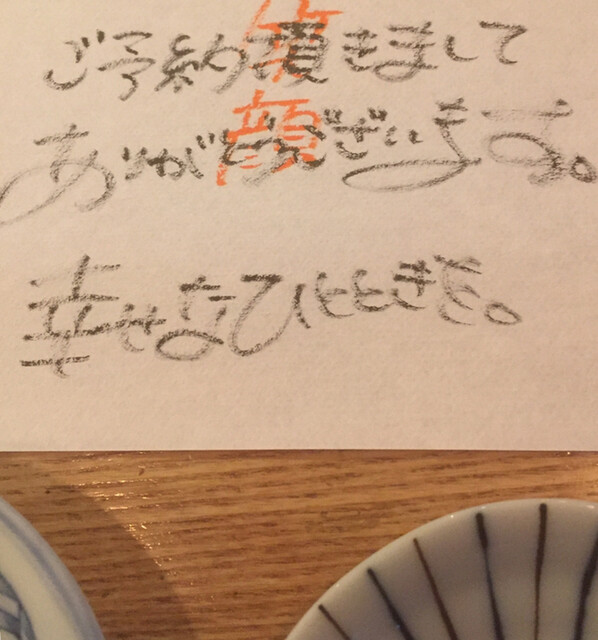 ご予約頂きまして
ありがとうございます。
幸せなひとときを。
笑顔